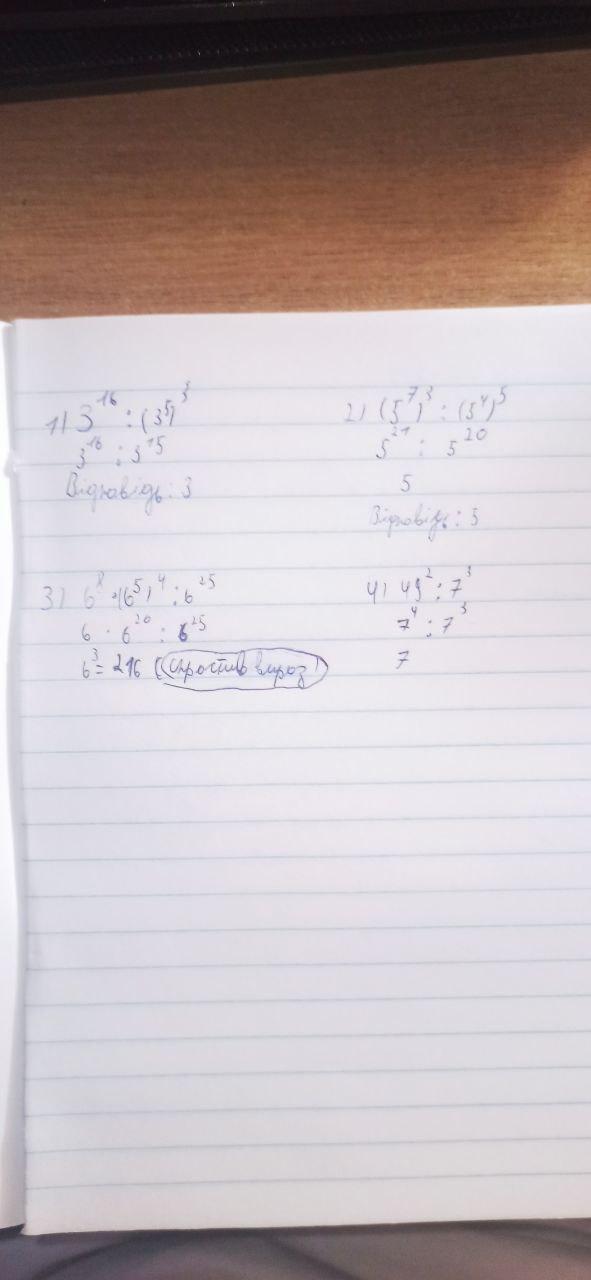 1) 3¹⁶ : (3⁵)³
3¹⁶ : 3¹⁵
Відповідь: 3
2) (5⁷)³ : (5⁴)⁵
5²¹ : 5²⁰
5
Відповідь: 5
3) 6⁸ · (6⁵)⁴ : 6²⁵
6 · 6²⁰ : 6²⁵
6³ = 216 (спростив вираз)
4) 49² : 7³
7⁴ : 7³
7